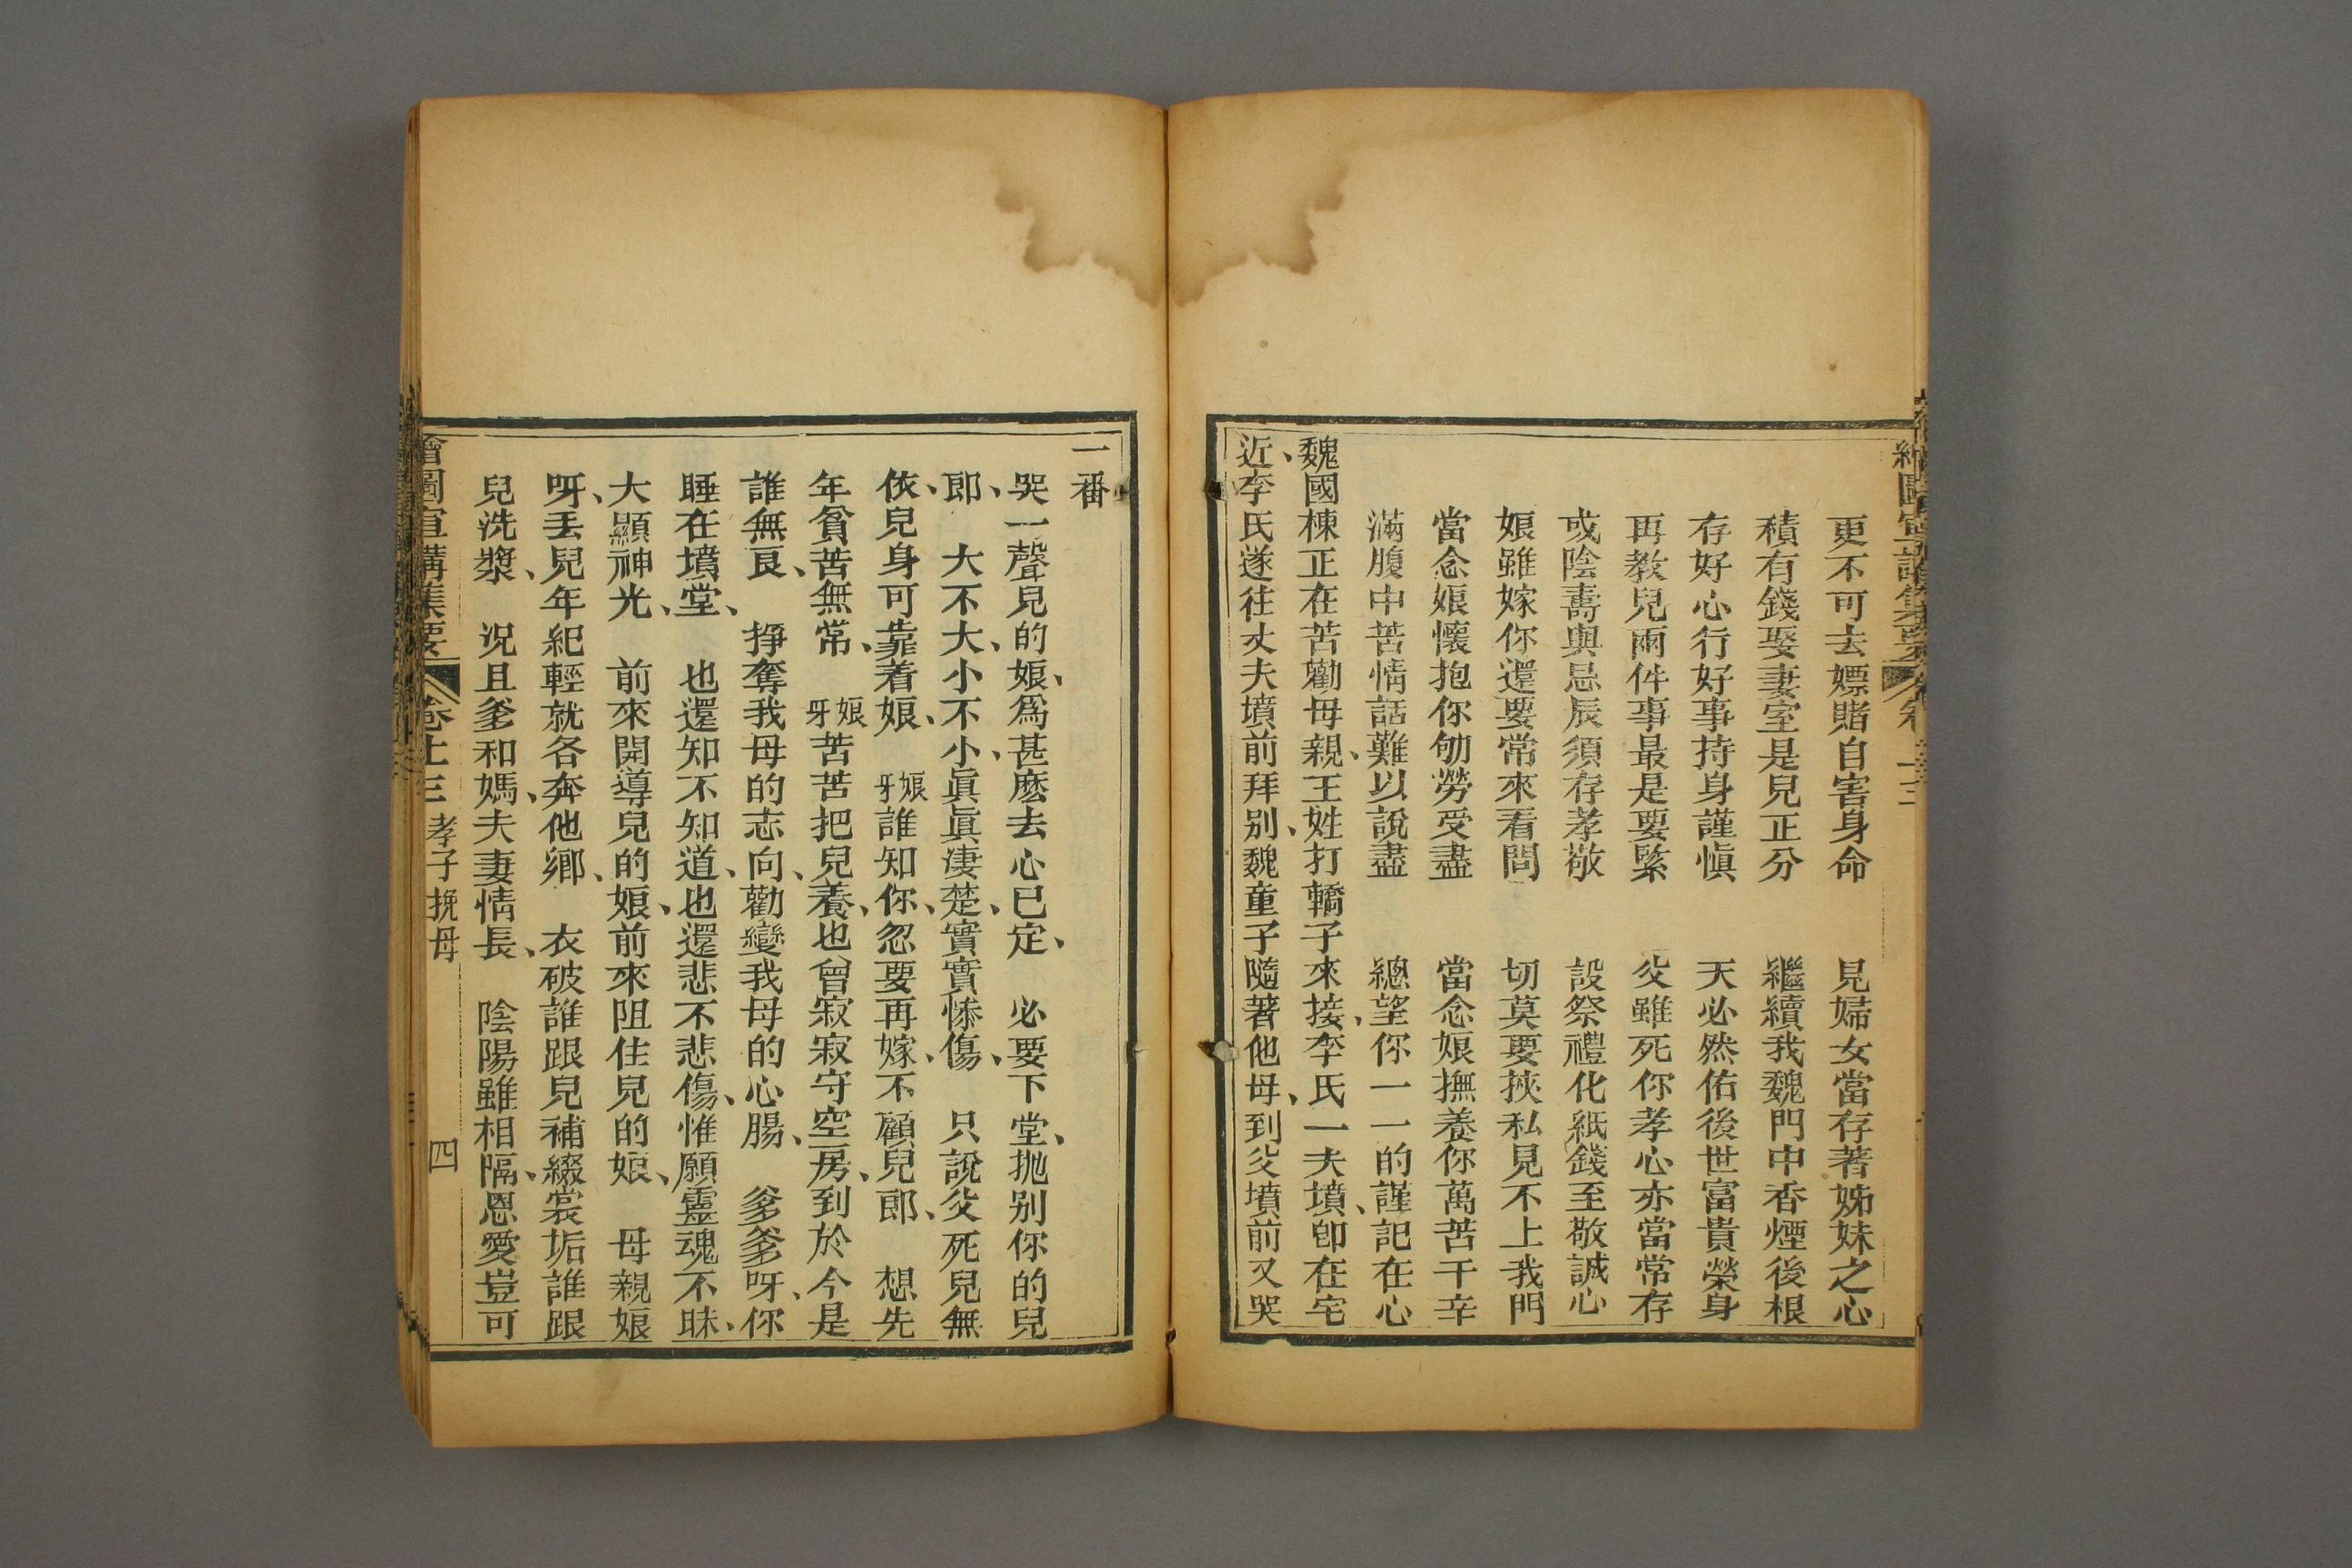 更不可去嫖賭自害身命　見婦女當存著姊妹之心
積有錢娶妻室是兒正分　繼續我魏門中香煙後根
存好心行好事持身謹慎　天必然佑後世富貴榮身
再教兒兩件事最是要緊　父雖死你孝心亦當常存
或陰壽與忌辰須存孝敬　設祭禮化紙錢至敬誠心
娘雖嫁你還要常來看問　切莫要挾私見不上我門
當念娘懷抱你劬勞受盡　當念娘撫養你萬苦千辛
滿腹中苦情話難以說盡　總望你一一的謹記在心
魏國棟正在苦勸母親、王姓打轎子來接、李氏一夫墳、卽在宅
近、李氏遂往丈夫墳前拜别、魏童子隨著他母、到父墳前又哭
一番
哭一聲兒的娘、爲甚麽去心已定、　必要下堂、抛别你的兒
郎、　大不大、小不小、眞眞凄楚、實實慘傷、　只說父死兒無
依、兒身可靠着娘、　娘呀誰知你、忽要再嫁、不顧兒郎、　想先
年貧苦無常、　娘呀苦苦把兒養、也曾寂寂守空房、到於今是
誰無良、　掙奪我母的志向、勸變我母的心腸、　爹爹呀、你
睡在墳堂、　也還知不知道、也還悲不悲傷、惟願靈魂不昧、
大顯神光、　前來開導兒的娘、前來阻住兒的娘、　母親娘
呀、丟兒年紀輕就各奔他鄉、　衣破誰跟兒補綴裳垢誰跟
兒洗漿、　況且爹和媽、夫妻情長、　陰陽雖相隔、恩愛豈可
繪圖宣講集要　卷十三　孝子挽母　四